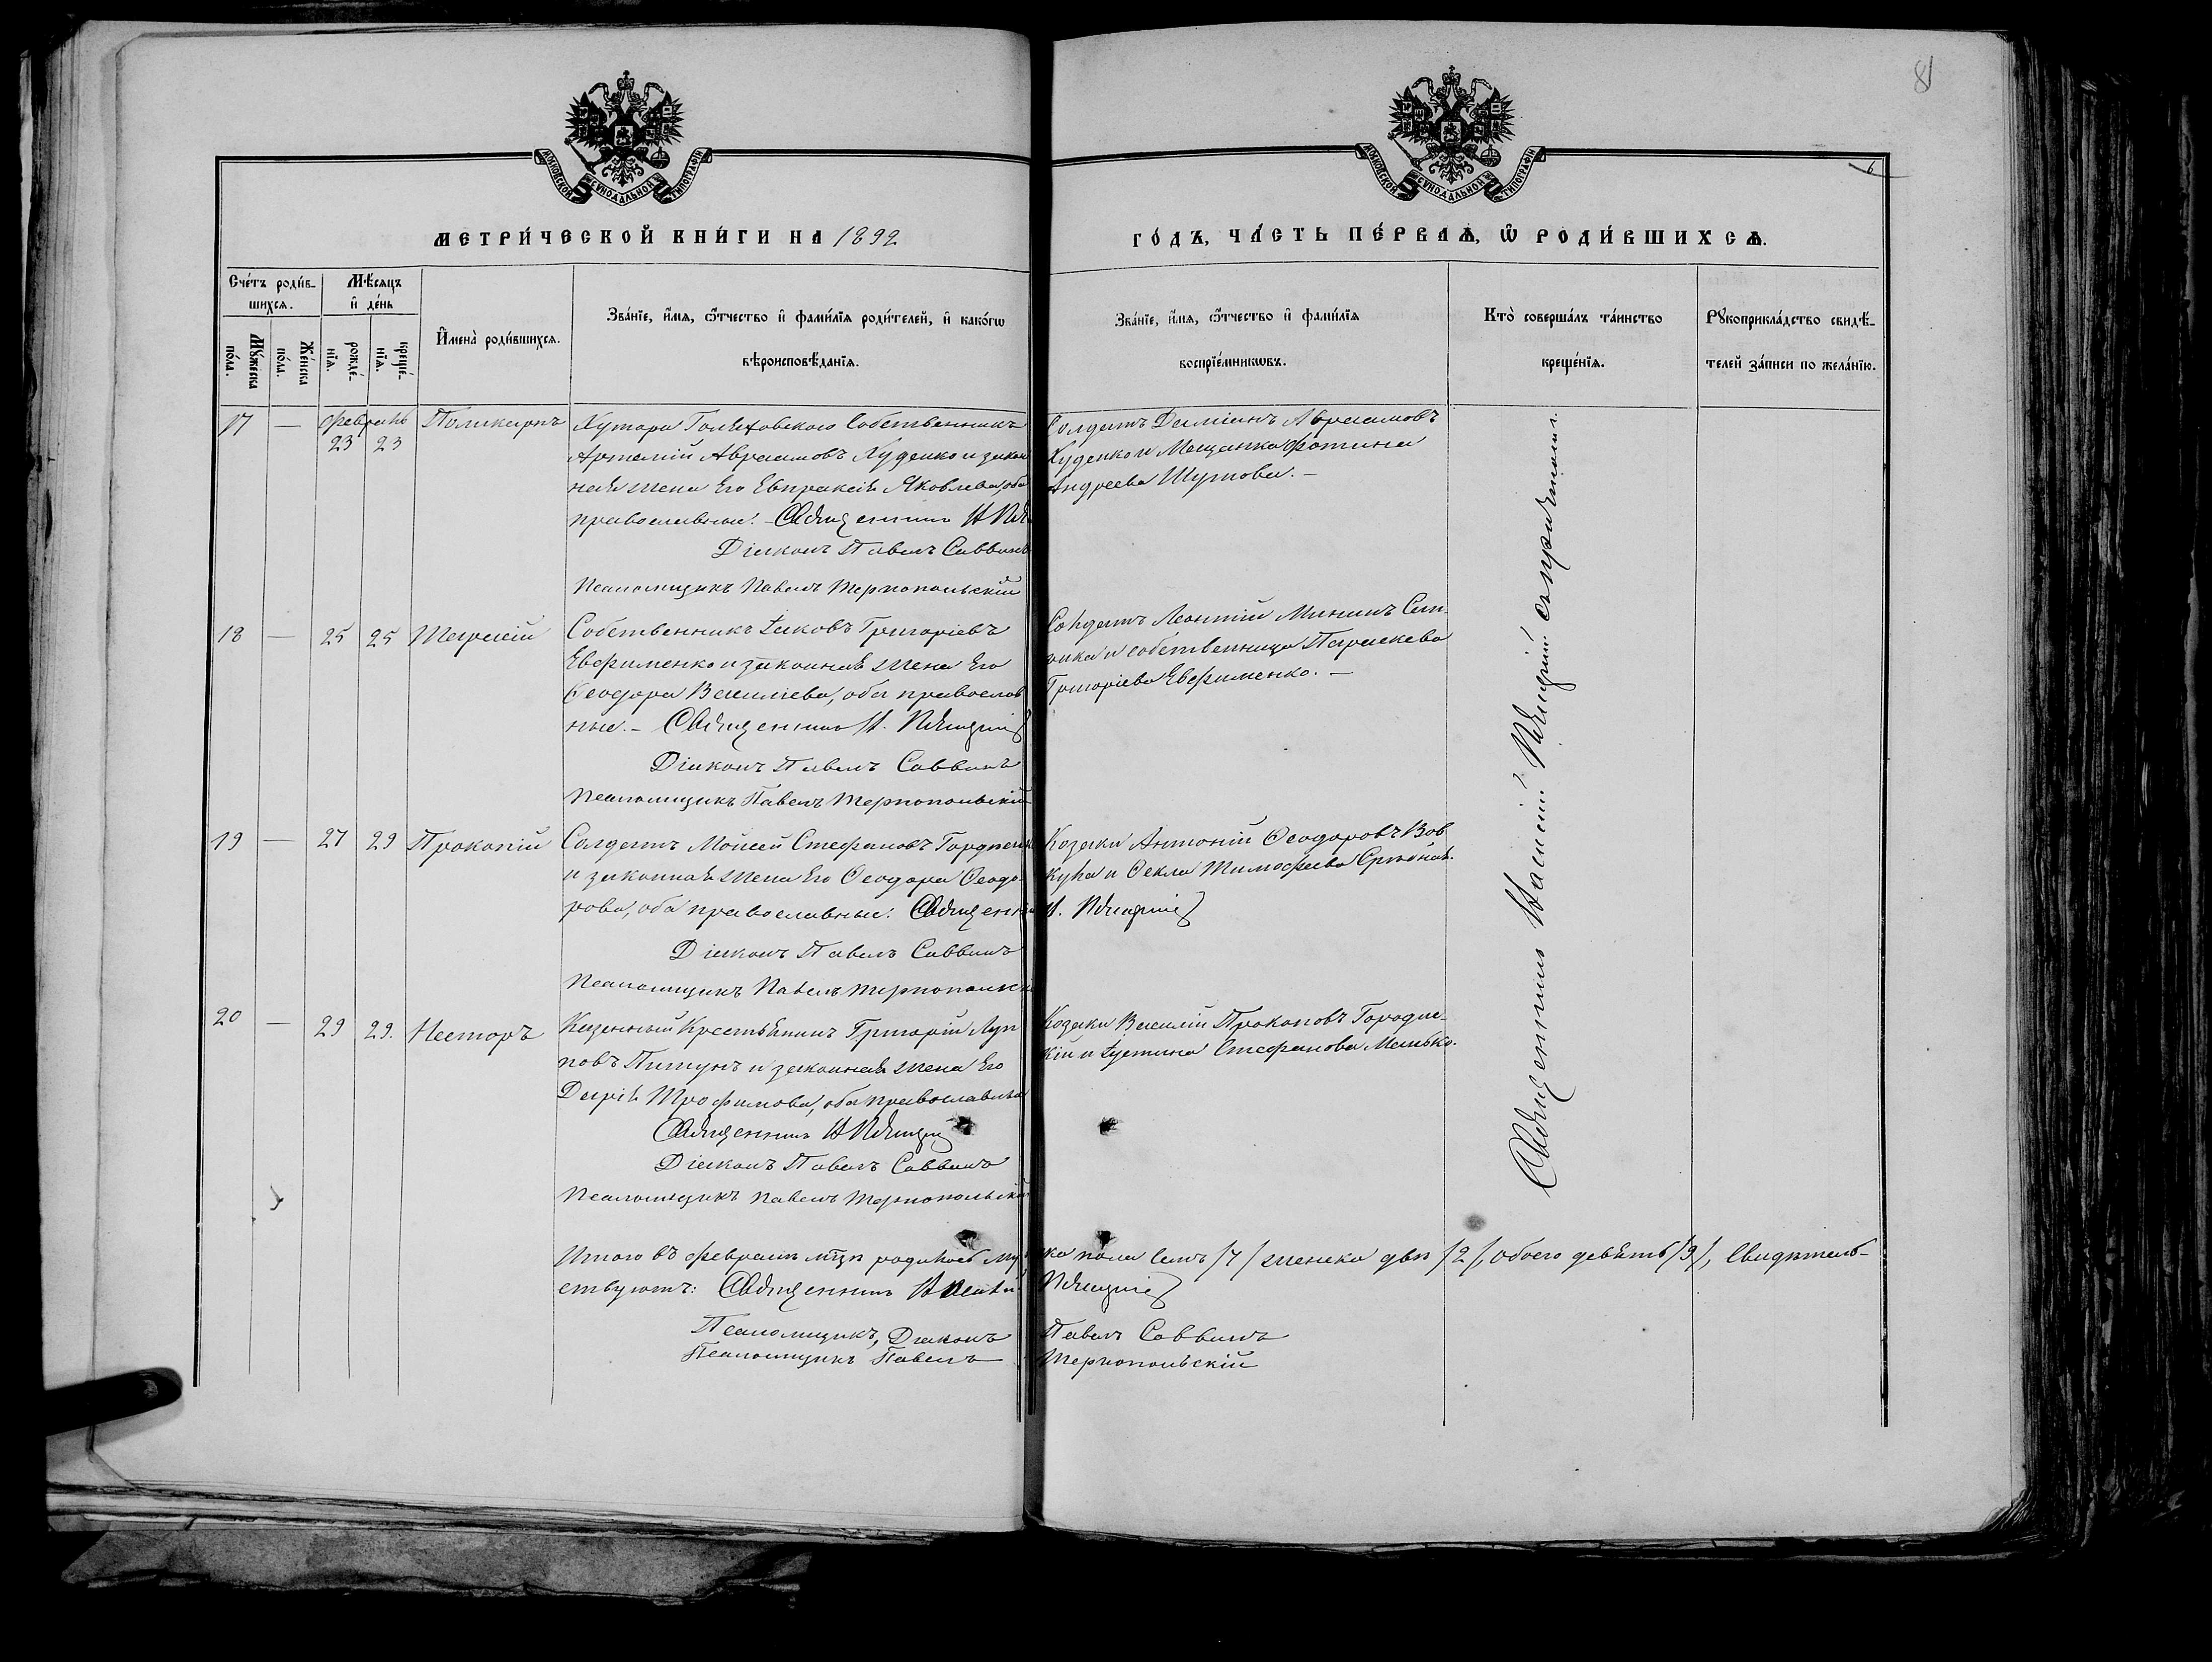 81
6
МОСКОВСКОЙ СѴНОДАЛЬНОЙ ТИПОГРАФІИ
МОСКОВСКОЙ СѴНОДАЛЬНОЙ ТИПОГРАФІИ
МЕТРИ́ЧЕСКОЙ КНИ́ГИ НА 1892
ГО́ДЪ, ЧА́СТЬ ПЕ́РВАѦ, Ѡ РОДИ́ВШИХСѦ.
Сче́тъ роди́в-
шихсѧ.
Мѣ́сѧцъ
и де́нь
Мꙋ́жеска
по́ла.
Же́нска
по́ла.
рожде́-
нїѧ.
креще́-
нїѧ.
И҆мена̀ роди́вшихсѧ.
Зва́нїе, и҆́мѧ, ѻ҆́тчество и҆ фами́лїѧ роди́телей, и҆ како́гѡ
вѣроисповѣ́данїѧ.
Зва́нїе, и҆́мѧ, ѻ҆́тчество и҆ фами́лїѧ
воспрїе́мникѡвъ.
Кто̀ соверша́лъ та́инство
креще́нїѧ.
Рꙋкоприкла́дство свидѣ́-
телей за́писи по жела́нїю.
17 — Февраль 23 23 Поликарпъ
Хутора Собственникъ
Арталій Авраамовъ Худенко и закон
ная жена Его Евпраксія Яковлева, оба
православные. – Священникъ И
Діаконъ Павелъ Саввинъ
Псаломщикъ Павелъ Тернопольскій
Солдатъ Даміанъ Авраамовъ
Худенко и Мещанка Фотина
Андреева Шутова. –
18 — 25 25 Тарасій
Собственникъ Іаковъ Григоріевъ
Евфименко и законная жена Его
Ѳеодора Василіева, оба православ
ные. – Священникъ И. Пѣшадкій
Діаконъ Павелъ Саввинъ
Псаломщикъ Павелъ Тернопольскій
Солдатъ Леонтій Мининъ
и собственница Параскева
Григоріева Евфименко. –
19 — 27 29 Прокопій
Солдатъ Моисей Стефановъ Гордіен
и законная жена Его Ѳеодора Ѳеодо-
рова, оба православные. Священни
Діаконъ Павелъ Саввинъ
Псаломщикъ Павелъ Тернопольскі
Козаки Антоній Ѳеодоровъ Вов
кула и Ѳекла Тимофеева
И.
20 — 29 29. Несторъ
Казенный Крестьянинъ Григорій Луп
повъ Пищунъ и законная жена Его
Дарія Трофимова, оба православные
Священникъ И
Діаконъ Павелъ Саввинъ
Псаломщикъ Павелъ Тернопольскій
Козаки Василій Прокоповъ Городис-
кій и Іустина Стефанова Мелько.
Священникъ Іоаннъ
Итого въ февралѣ мцѣ родилось му
ска пола семь /7/ женска двѣ /2/, обоего девять /9/, Свидѣтель-
ствуютъ: Священникъ
Псаломщикъ, Діаконъ Павелъ Саввинъ
Псаломщикъ Павелъ Тернопольскій